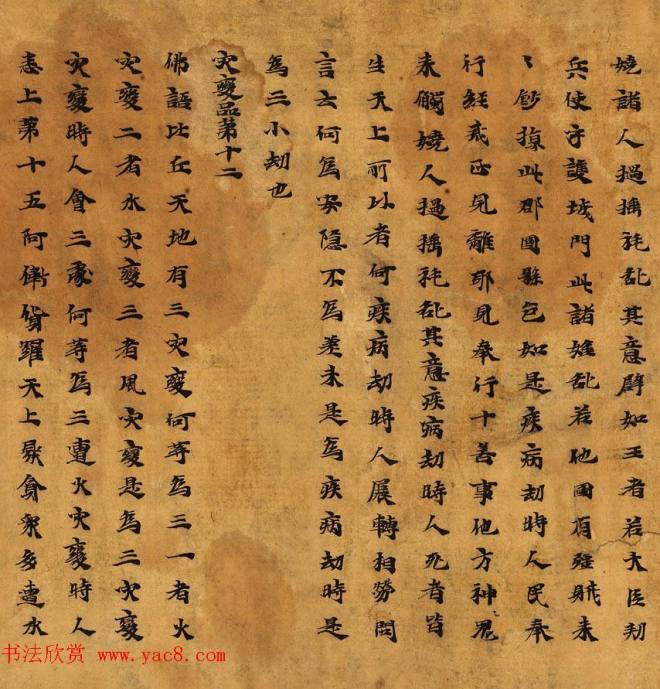 嬈諸人過揺秏亂其意辟如王者若大臣勑
兵使守護城門此諸雄亂若他國有強賊来
〻鈔掠此郡國縣邑如是疾病劫時人民奉
行經戒正見離耶見奉行十善事他方神鬼
来觸嬈人過揺秏亂其意疾病劫時人死者皆
生天上所以者何疾病劫時人展轉相勞問
言云何為安隐不為差未是為疾病劫時是
為三小劫也
灾變品第十二
佛語比丘天地有三灾變何等為三一者火
灾變二者水灾變三者風灾變是為三灾變
灾變時人會三處何等為三遭火灾變時人
悉上第十五阿衛貨羅天上衆多遭水
书法欣赏 www.yac8.com